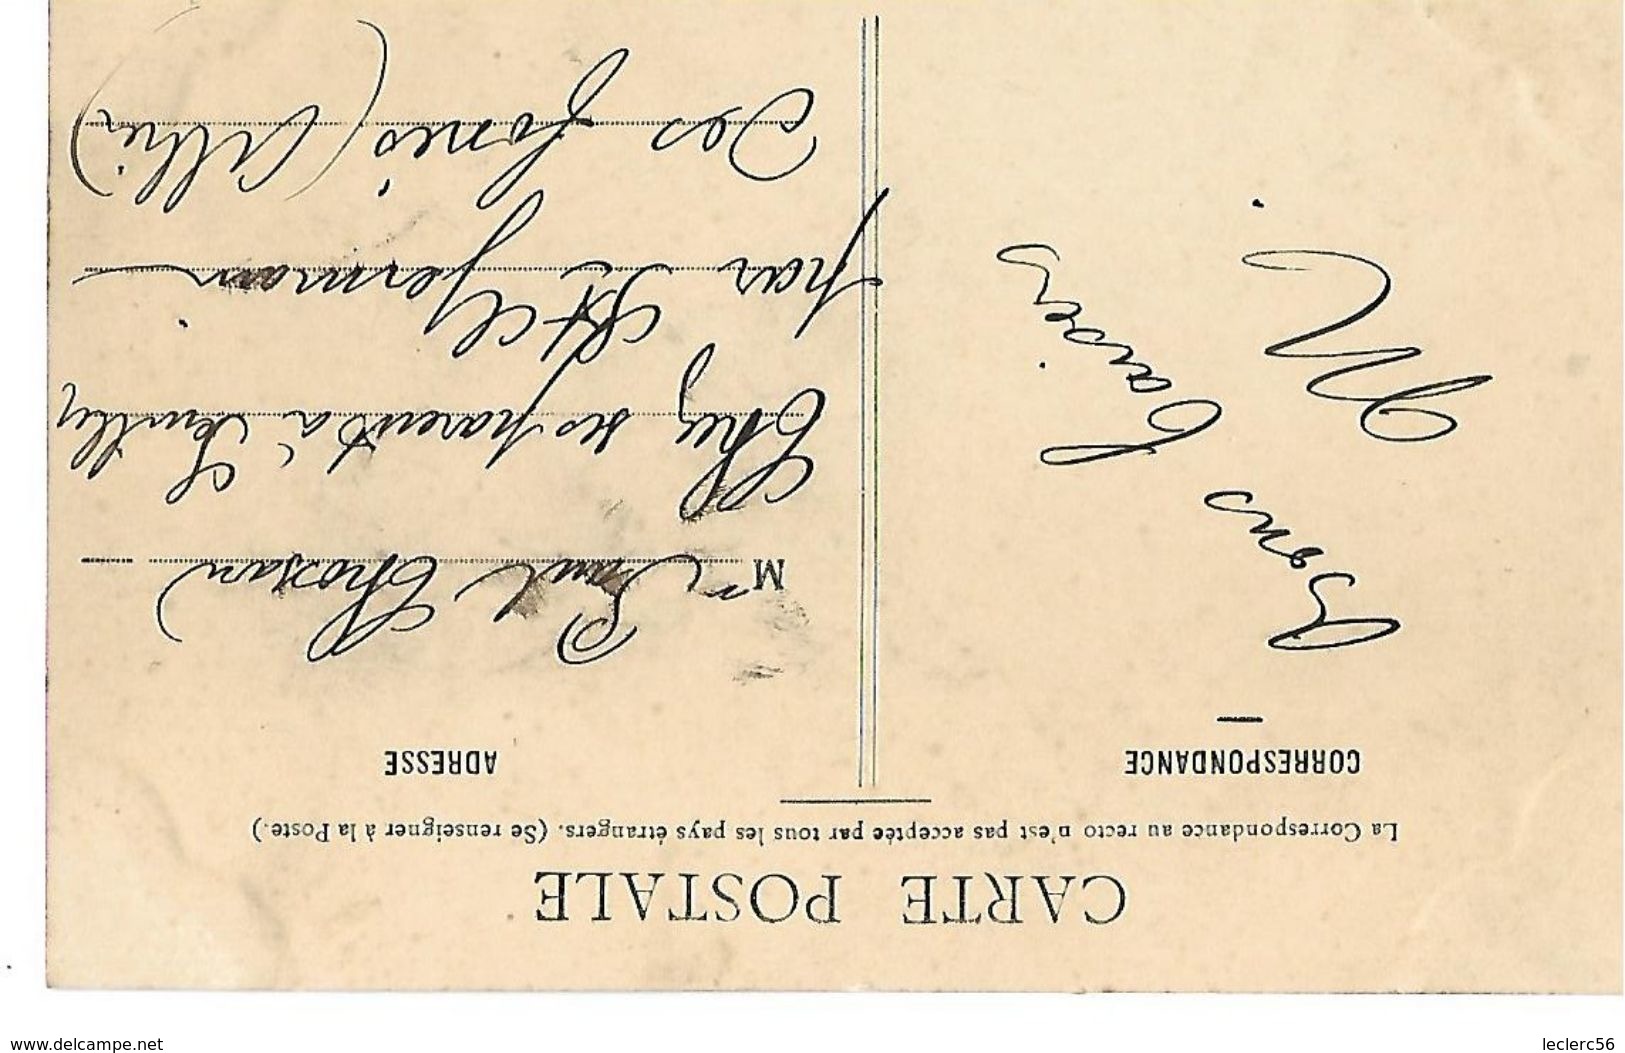 CARTE POSTALE
La Correspondance au recto n'est pas acceptée par tous les pays étrangers. (Se renseigner à la Poste.)
CORRESPONDANCE
Bons
baisers
M.
ADRESSE
Mr Paul
Chez ses parents à
par St Germain
Des Fossés (Allier)
www.delcampe.net
leclerc56